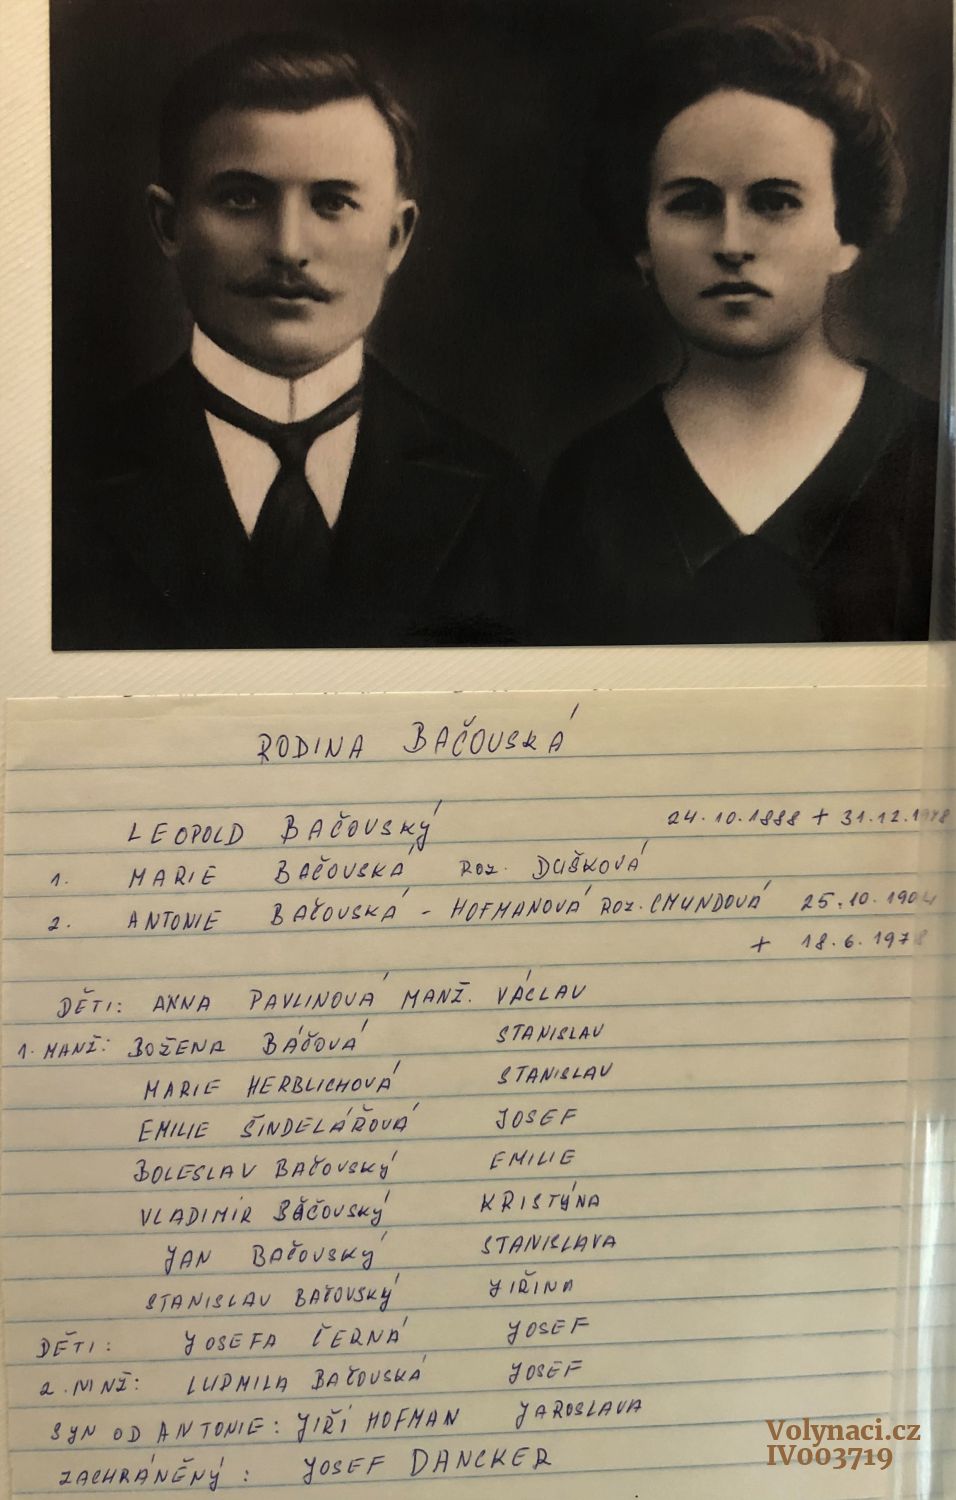 RODINA BAČOVSKÁ
LEOPOLD BAČOVSKÝ 24.10.1888 + 31.12.
1. MARIE BAČOVSKÁ ROZ. DUŠKOVÁ
2. ANTONIE BAČOVSKÁ - HOFMANOVÁ ROZ. CMUNDOVÁ 25.10.1904
+ 18.6.1978
DĚTI: ANNA PAVLINOVÁ MANŽ. VÁCLAV
1. MANŽ: BOŽENA BÁČOVÁ STANISLAV
MARIE HERBLICHOVÁ STANISLAV
EMILIE ŠINDELÁŘOVÁ JOSEF
BOLESLAV BAČOVSKÝ EMILIE
VLADIMÍR BAČOVSKÝ KRISTÝNA
JAN BAČOVSKÝ STANISLAVA
STANISLAV BAČOVSKÝ JIŘINA
DĚTI: JOSEFA ČERNÁ JOSEF
2. MNŽ: LUDMILA BAČOVSKÁ JOSEF
SYN OD ANTONIE: JIŘÍ HOFMAN JAROSLAVA
ZACHRÁNĚNÝ: JOSEF DANCKER
Volynaci.cz
IV003719